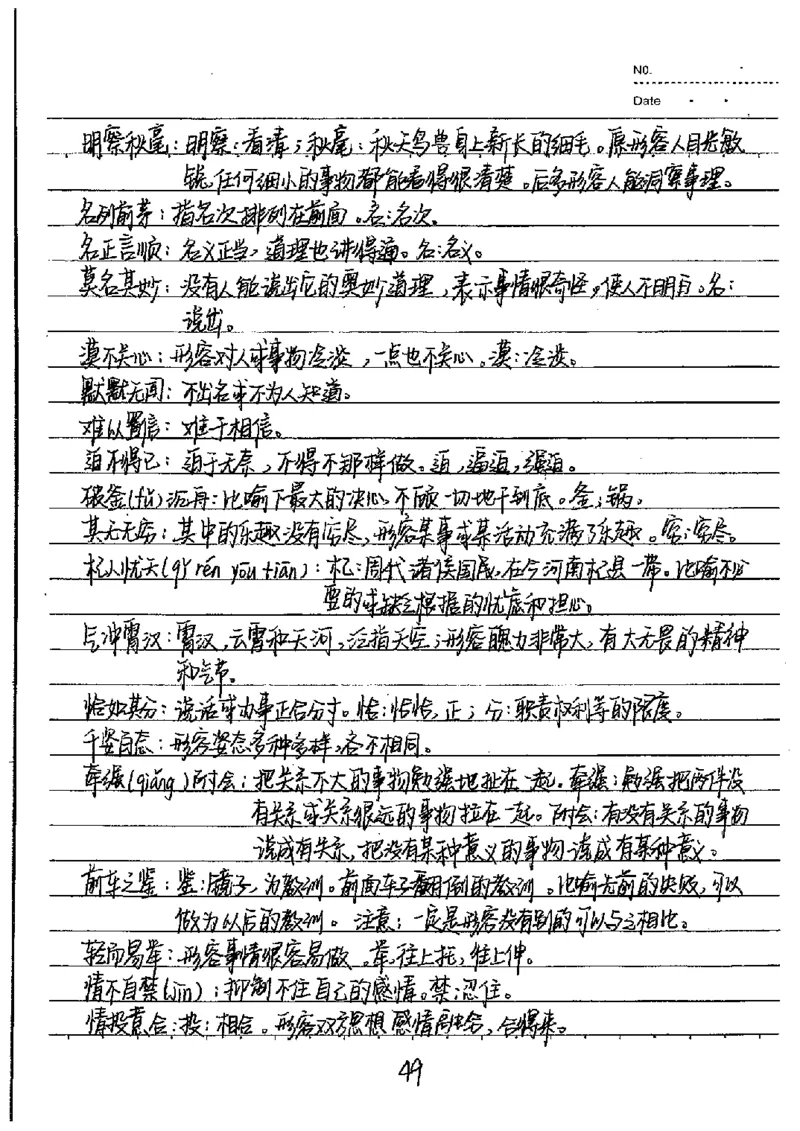 NO.
Date
明察秋毫：明察：看清；秋毫：秋天鸟兽身上新长的细毛。原形容人目光敏
锐，任何细小的事物都能看得很清楚。后多形容人能洞察事理。
名列前茅：指名次排列在前面。名：名次。
名正言顺：名义正当，道理也讲得通。名：名义。
莫名其妙：没有人能说出它的奥妙道理，表示事情很奇怪，使人不明白。名：
说出。
漠不关心：形容对人或事物冷淡，一点也不关心。漠：冷淡。
默默无闻：不出名或不为人知道。
难以置信：难于相信。
迫不得已：迫于无奈，不得不那样做。迫，逼迫，强迫。
破釜(fǔ)沉舟：比喻下最大的决心，不顾一切地干到底。釜：锅。
其乐无穷：其中的乐趣没有穷尽，形容某事或某活动充满了乐趣。穷：穷尽。
杞人忧天(qǐ rén yōu tiān)：杞：周代诸侯国民，在今河南杞县一带。比喻不必
要的或缺乏根据的忧虑和担心。
气冲霄汉：霄汉，云霄和天河，泛指天空；形容魄力非常大，有大无畏的精神
和气节。
恰如其分：说话或办事正合分寸。恰：恰恰，正；分：职责权利等的限度。
千姿百态：形容姿态多种多样，各不相同。
牵强(qiǎng)附会：把关系不大的事物勉强地扯在一起。牵强：勉强把两件没
有关系或关系很远的事物拉在一起。附会：有没有关系的事物
说成有关系，把没有某种意义的事物说成有某种意义。
前车之鉴：鉴：镜子，为教训。前面车子翻倒的教训。比喻先前的失败，可以
做为以后的教训。注意：一定是形容没有别的可以与之相比。
轻而易举：形容事情很容易做。举：往上托，往上伸。
情不自禁(jīn)：抑制不住自己的感情。禁：忍住。
情投意合：投：相合。形容双方思想感情融合，合得来。
49